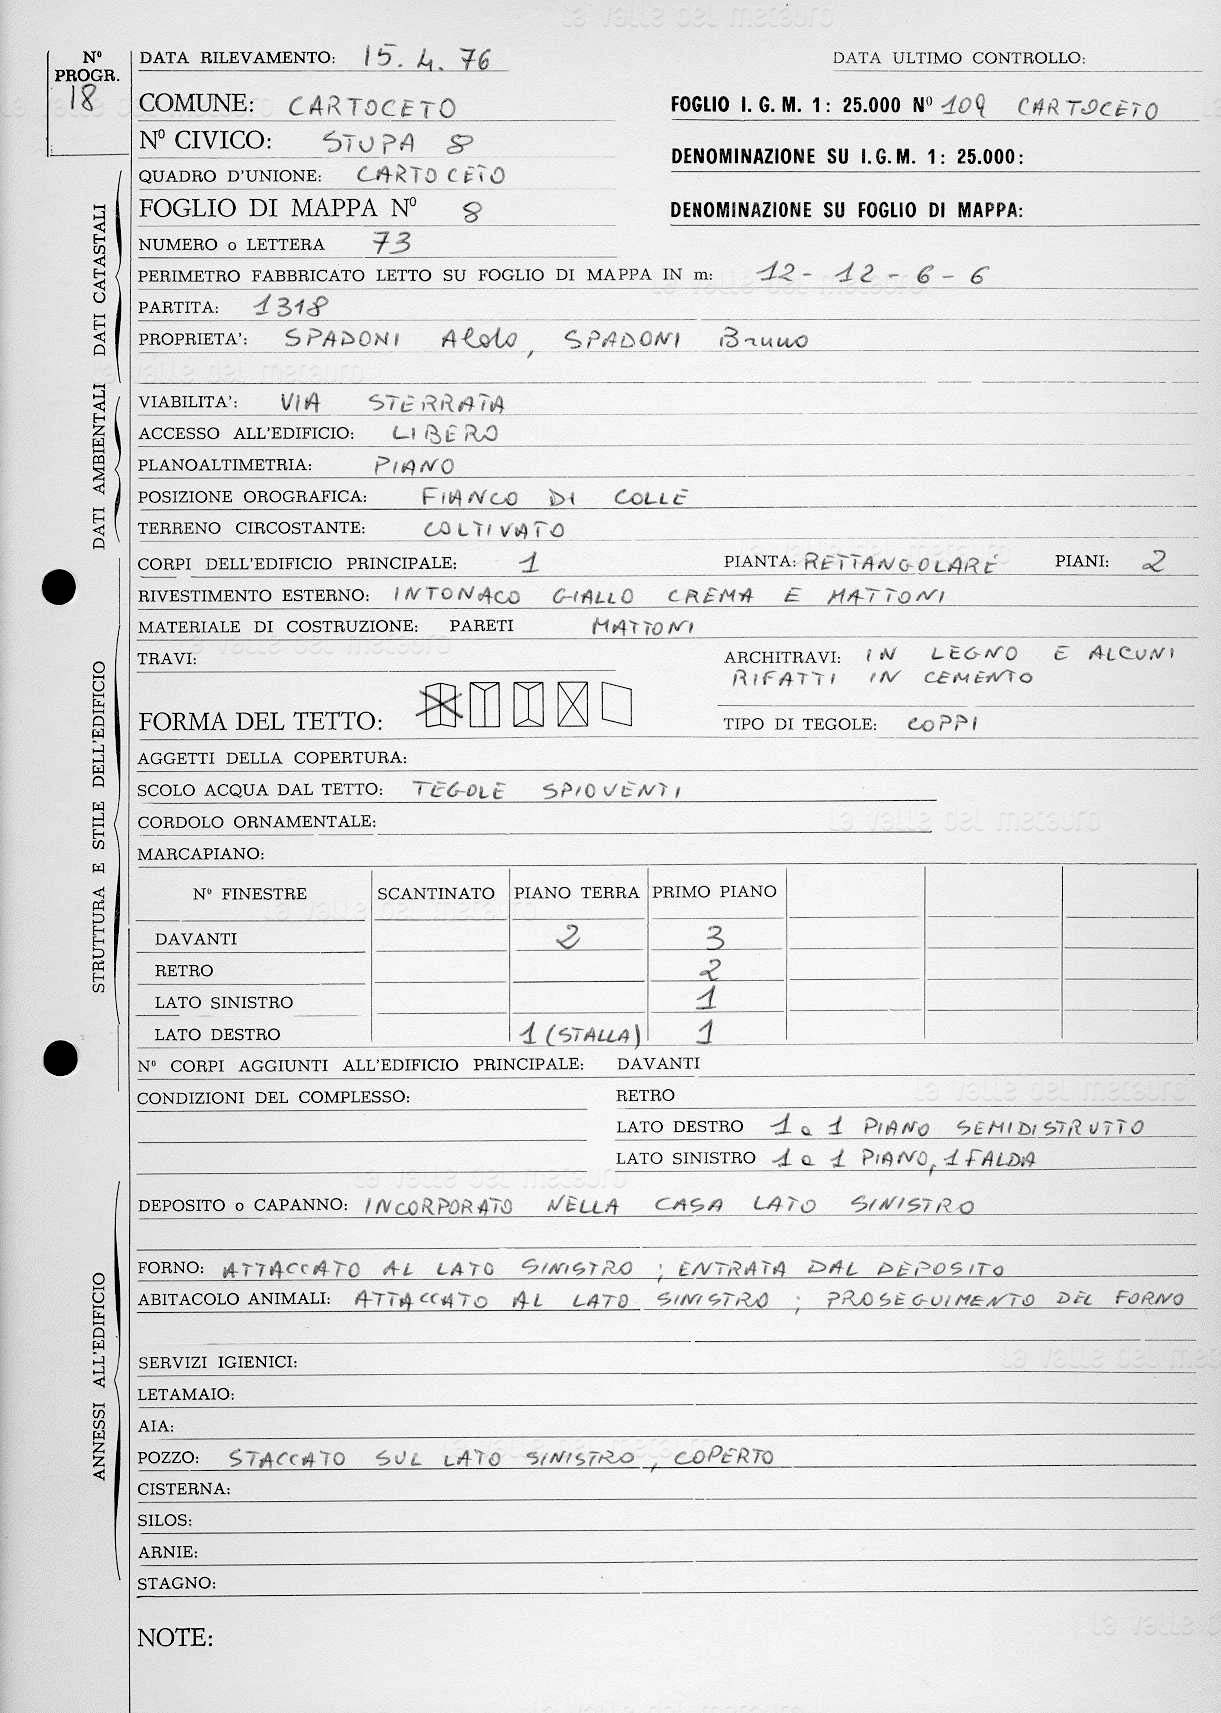 la valle del metauro
Nº PROGR. 18
DATA RILEVAMENTO: 15. 4. 76 DATA ULTIMO CONTROLLO:
COMUNE: CARTOCETO FOGLIO I. G. M. 1: 25.000 Nº 109 CARTOCETO
Nº CIVICO: STUPA 8 DENOMINAZIONE SU I. G. M. 1: 25.000:
QUADRO D'UNIONE: CARTOCETO
FOGLIO DI MAPPA Nº 8 DENOMINAZIONE SU FOGLIO DI MAPPA:
NUMERO o LETTERA 73
PERIMETRO FABBRICATO LETTO SU FOGLIO DI MAPPA IN m: 12 - 12 - 6 - 6
PARTITA: 1318
PROPRIETA': SPADONI Aldo, SPADONI Bruno
DATI CATASTALI
VIABILITA': VIA STERRATA
ACCESSO ALL'EDIFICIO: LIBERO
PLANOALTIMETRIA: PIANO
POSIZIONE OROGRAFICA: FIANCO DI COLLE
TERRENO CIRCOSTANTE: COLTIVATO
DATI AMBIENTALI
CORPI DELL'EDIFICIO PRINCIPALE: 1 PIANTA: RETTANGOLARE PIANI: 2
RIVESTIMENTO ESTERNO: INTONACO GIALLO CREMA E MATTONI
MATERIALE DI COSTRUZIONE: PARETI MATTONI
TRAVI: ARCHITRAVI: IN LEGNO E ALCUNI
RIFATTI IN CEMENTO
FORMA DEL TETTO: TIPO DI TEGOLE: COPPI
AGGETTI DELLA COPERTURA:
SCOLO ACQUA DAL TETTO: TEGOLE SPIOVENTI
CORDOLO ORNAMENTALE:
MARCAPIANO:
Nº FINESTRE SCANTINATO PIANO TERRA PRIMO PIANO
DAVANTI 2 3
RETRO 2
LATO SINISTRO 1
LATO DESTRO 1 (STALLA) 1
STRUTTURA E STILE DELL'EDIFICIO
Nº CORPI AGGIUNTI ALL'EDIFICIO PRINCIPALE: DAVANTI
CONDIZIONI DEL COMPLESSO: RETRO
LATO DESTRO 1 a 1 PIANO SEMIDISTRUTTO
LATO SINISTRO 1 a 1 PIANO, 1 FALDA
DEPOSITO o CAPANNO: INCORPORATO NELLA CASA LATO SINISTRO
FORNO: ATTACCATO AL LATO SINISTRO ; ENTRATA DAL DEPOSITO
ABITACOLO ANIMALI: ATTACCATO AL LATO SINISTRO ; PROSEGUIMENTO DEL FORNO
SERVIZI IGIENICI:
LETAMAIO:
AIA:
POZZO: STACCATO SUL LATO SINISTRO, COPERTO
CISTERNA:
SILOS:
ARNIE:
STAGNO:
ANNESSI ALL'EDIFICIO
NOTE: